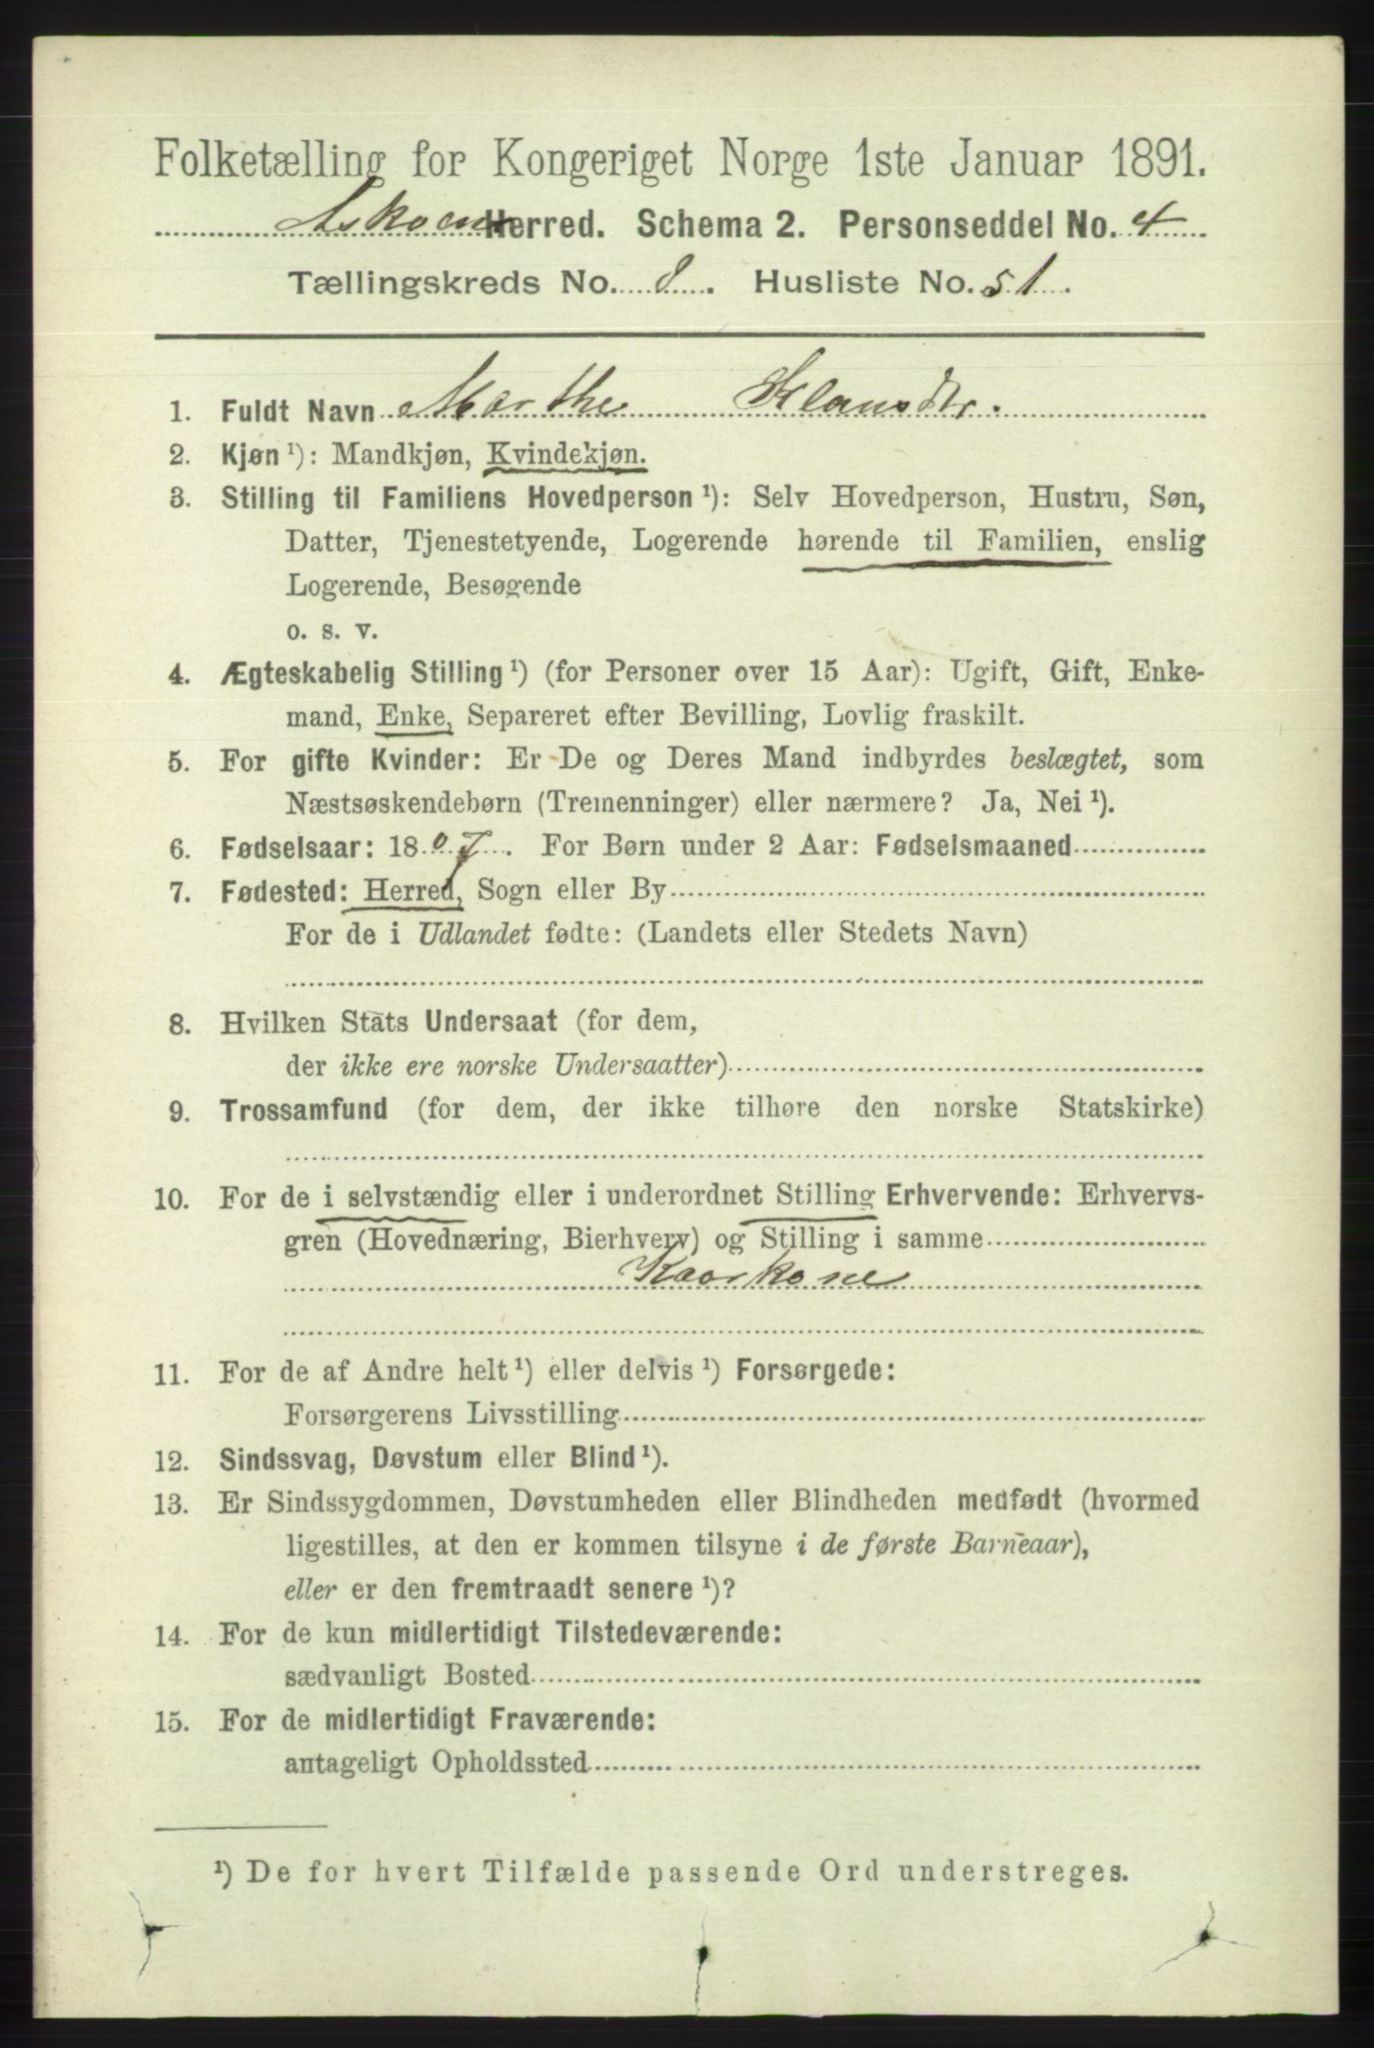 Folketælling for Kongeriget Norge 1ste Januar 1891.
Askvoll Herred. Schema 2. Personseddel No. 4
Tællingskreds No. 8. Husliste No. 51.
1. Fuldt Navn Marthe Klausdtr.
2. Kjøn ¹): Mandkjøn, Kvindekjøn.
3. Stilling til Familiens Hovedperson ¹): Selv Hovedperson, Hustru, Søn,
Datter, Tjenestetyende, Logerende hørende til Familien, enslig
Logerende, Besøgende
o. s. v.
4. Ægteskabelig Stilling ¹) (for Personer over 15 Aar): Ugift, Gift, Enke-
mand, Enke, Separeret efter Bevilling, Lovlig fraskilt.
5. For gifte Kvinder: Er De og Deres Mand indbyrdes beslægtet, som
Næstsøskendebørn (Tremenninger) eller nærmere? Ja, Nei ¹).
6. Fødselsaar: 1807. For Børn under 2 Aar: Fødselsmaaned
7. Fødested: Herred, Sogn eller By
For de i Udlandet fødte: (Landets eller Stedets Navn)
8. Hvilken Stats Undersaat (for dem,
der ikke ere norske Undersaatter)
9. Trossamfund (for dem, der ikke tilhøre den norske Statskirke)
10. For de i selvstændig eller i underordnet Stilling Erhvervende: Erhvervs-
gren (Hovednæring, Bierhverv) og Stilling i samme
Kaarkone
11. For de af Andre helt ¹) eller delvis ¹) Forsørgede:
Forsørgerens Livsstilling
12. Sindssvag, Døvstum eller Blind ¹).
13. Er Sindssygdommen, Døvstumheden eller Blindheden medfødt (hvormed
ligestilles, at den er kommen tilsyne i de første Barneaar),
eller er den fremtraadt senere ¹)?
14. For de kun midlertidigt Tilstedeværende:
sædvanligt Bosted
15. For de midlertidigt Fraværende:
antageligt Opholdssted
¹) De for hvert Tilfælde passende Ord understreges.